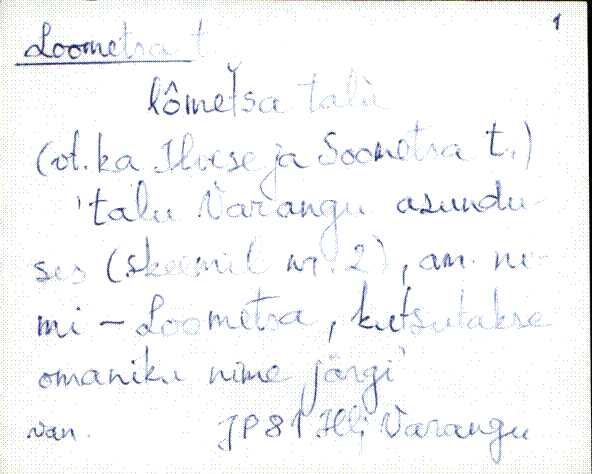 1
Loometsa t.
lômetsa talu
(vt. ka Ilvese ja Soometsa t.)
'talu Varangu asundu-
ses (skeemil nr. 2), am. ni-
mi – Loometsa, kutsutakse
omaniku nime järgi'
van. JP 81 Hlj Varangu